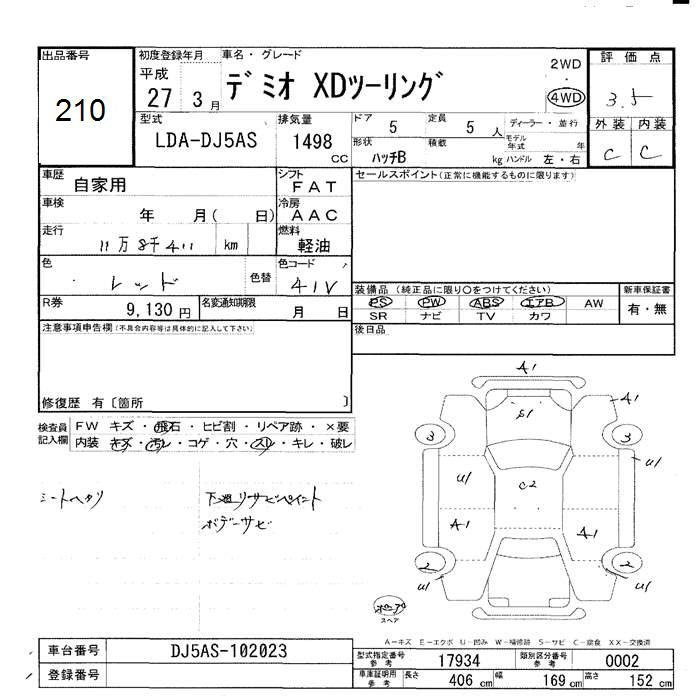 出品番号
210
初度登録年月
平成
27 3月
車名・グレード
デミオ XDツーリング
2WD
4WD
評価点
3.5
外装 内装
C C
型式
LDA-DJ5AS
排気量
1498
CC
ドア
5
定員
5 人
ディーラー・並行
モデル年式 年
形状
ハッチB
積載
kg
ハンドル 左・右
車歴
自家用
シフト
FAT
車検
年 月( 日)
冷房
AAC
走行
11万8千411 km
燃料
軽油
色
レッド
色替
色コード
41V
R券
9,130円
名変通知期限
月 日
セールスポイント(正常に機能するものに限ります)
装備品(純正品に限り○をつけてください)
PS PW ABS エアB AW
SR ナビ TV カワ
新車保証書
有・無
後日品
注意事項申告欄(不具合内容等は具体的に記入して下さい)
修復歴 有〔箇所 〕
検査員記入欄
FW キズ・飛石・ヒビ割・リペア跡・×要
内装 キズ・汚レ・コゲ・穴・スレ・キレ・破レ
シートヘタリ
下廻リサビペイント
ボデーサビ
A1
S1
A1
3
3
U1
U1
C2
A1
A1
2
2
U1
U1
スペア
A-キズ E-エクボ U-凹み W-補修跡 S-サビ C-腐食 XX-交換済
車台番号
DJ5AS-102023
登録番号
型式指定番号 参考
17934
類別区分番号 参考
0002
車庫証明用 参考
長さ 406 cm 幅 169 cm 高さ 152 cm